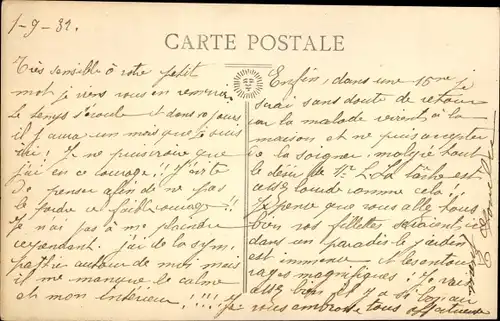 1-9-32.
CARTE POSTALE
Très sensible à votre petit
mot je viens vous en remercier.
Le temps s'écoule et dans 10 jours
il y aura un mois que je suis
ici! Je ne puis croire que
j'ai eu ce courage! J'évite
de penser afin de ne pas
le perdre ce faible courage!!
Je n'ai pas à me plaindre
cependant. j'ai de la sym-
pathie autour de moi mais
il me manque le calme
et mon intérieur!!!! Je
Enfin, dans une 15ne je
serai sans doute de retour
car la malade revient à la
maison et ne puis accepter
de la soigner malgré tout
le désir la tâche est
assez lourde comme cela!!
Je pense que vous allez tous
bien vos fillettes
dans un paradis le jardin
est immense et les entou-
rages magnifiques! Je vais
assez bien il y a si bon air
vous embrasse tous affectueuse